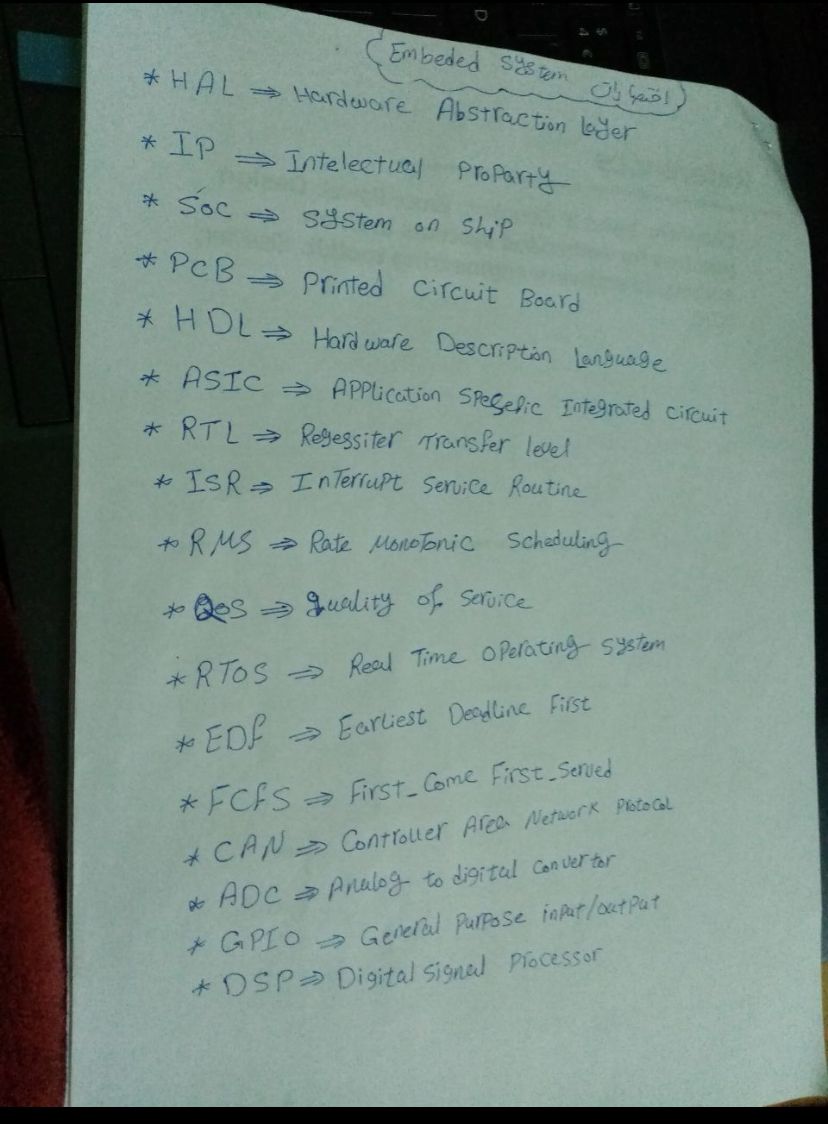 Embeded System اختصارات
* HAL ⇒ Hardware Abstraction Layer
* IP ⇒ Intelectual Proparty
* SoC ⇒ System on Ship
* PCB ⇒ Printed Circuit Board
* HDL ⇒ Hardware Description Language
* ASIC ⇒ Application Spesefic Integrated Circuit
* RTL ⇒ Regessiter Transfer level
* ISR ⇒ Interrupt Service Routine
* RMS ⇒ Rate Monotonic Scheduling
* QoS ⇒ Quality of Service
* RTOS ⇒ Real Time Operating System
* EDF ⇒ Earliest Deadline First
* FCFS ⇒ First_Come First_Served
* CAN ⇒ Controller Area Network Protocol
* ADC ⇒ Analog to digital Convertor
* GPIO ⇒ General Purpose input/output
* DSP ⇒ Digital Signal Processor